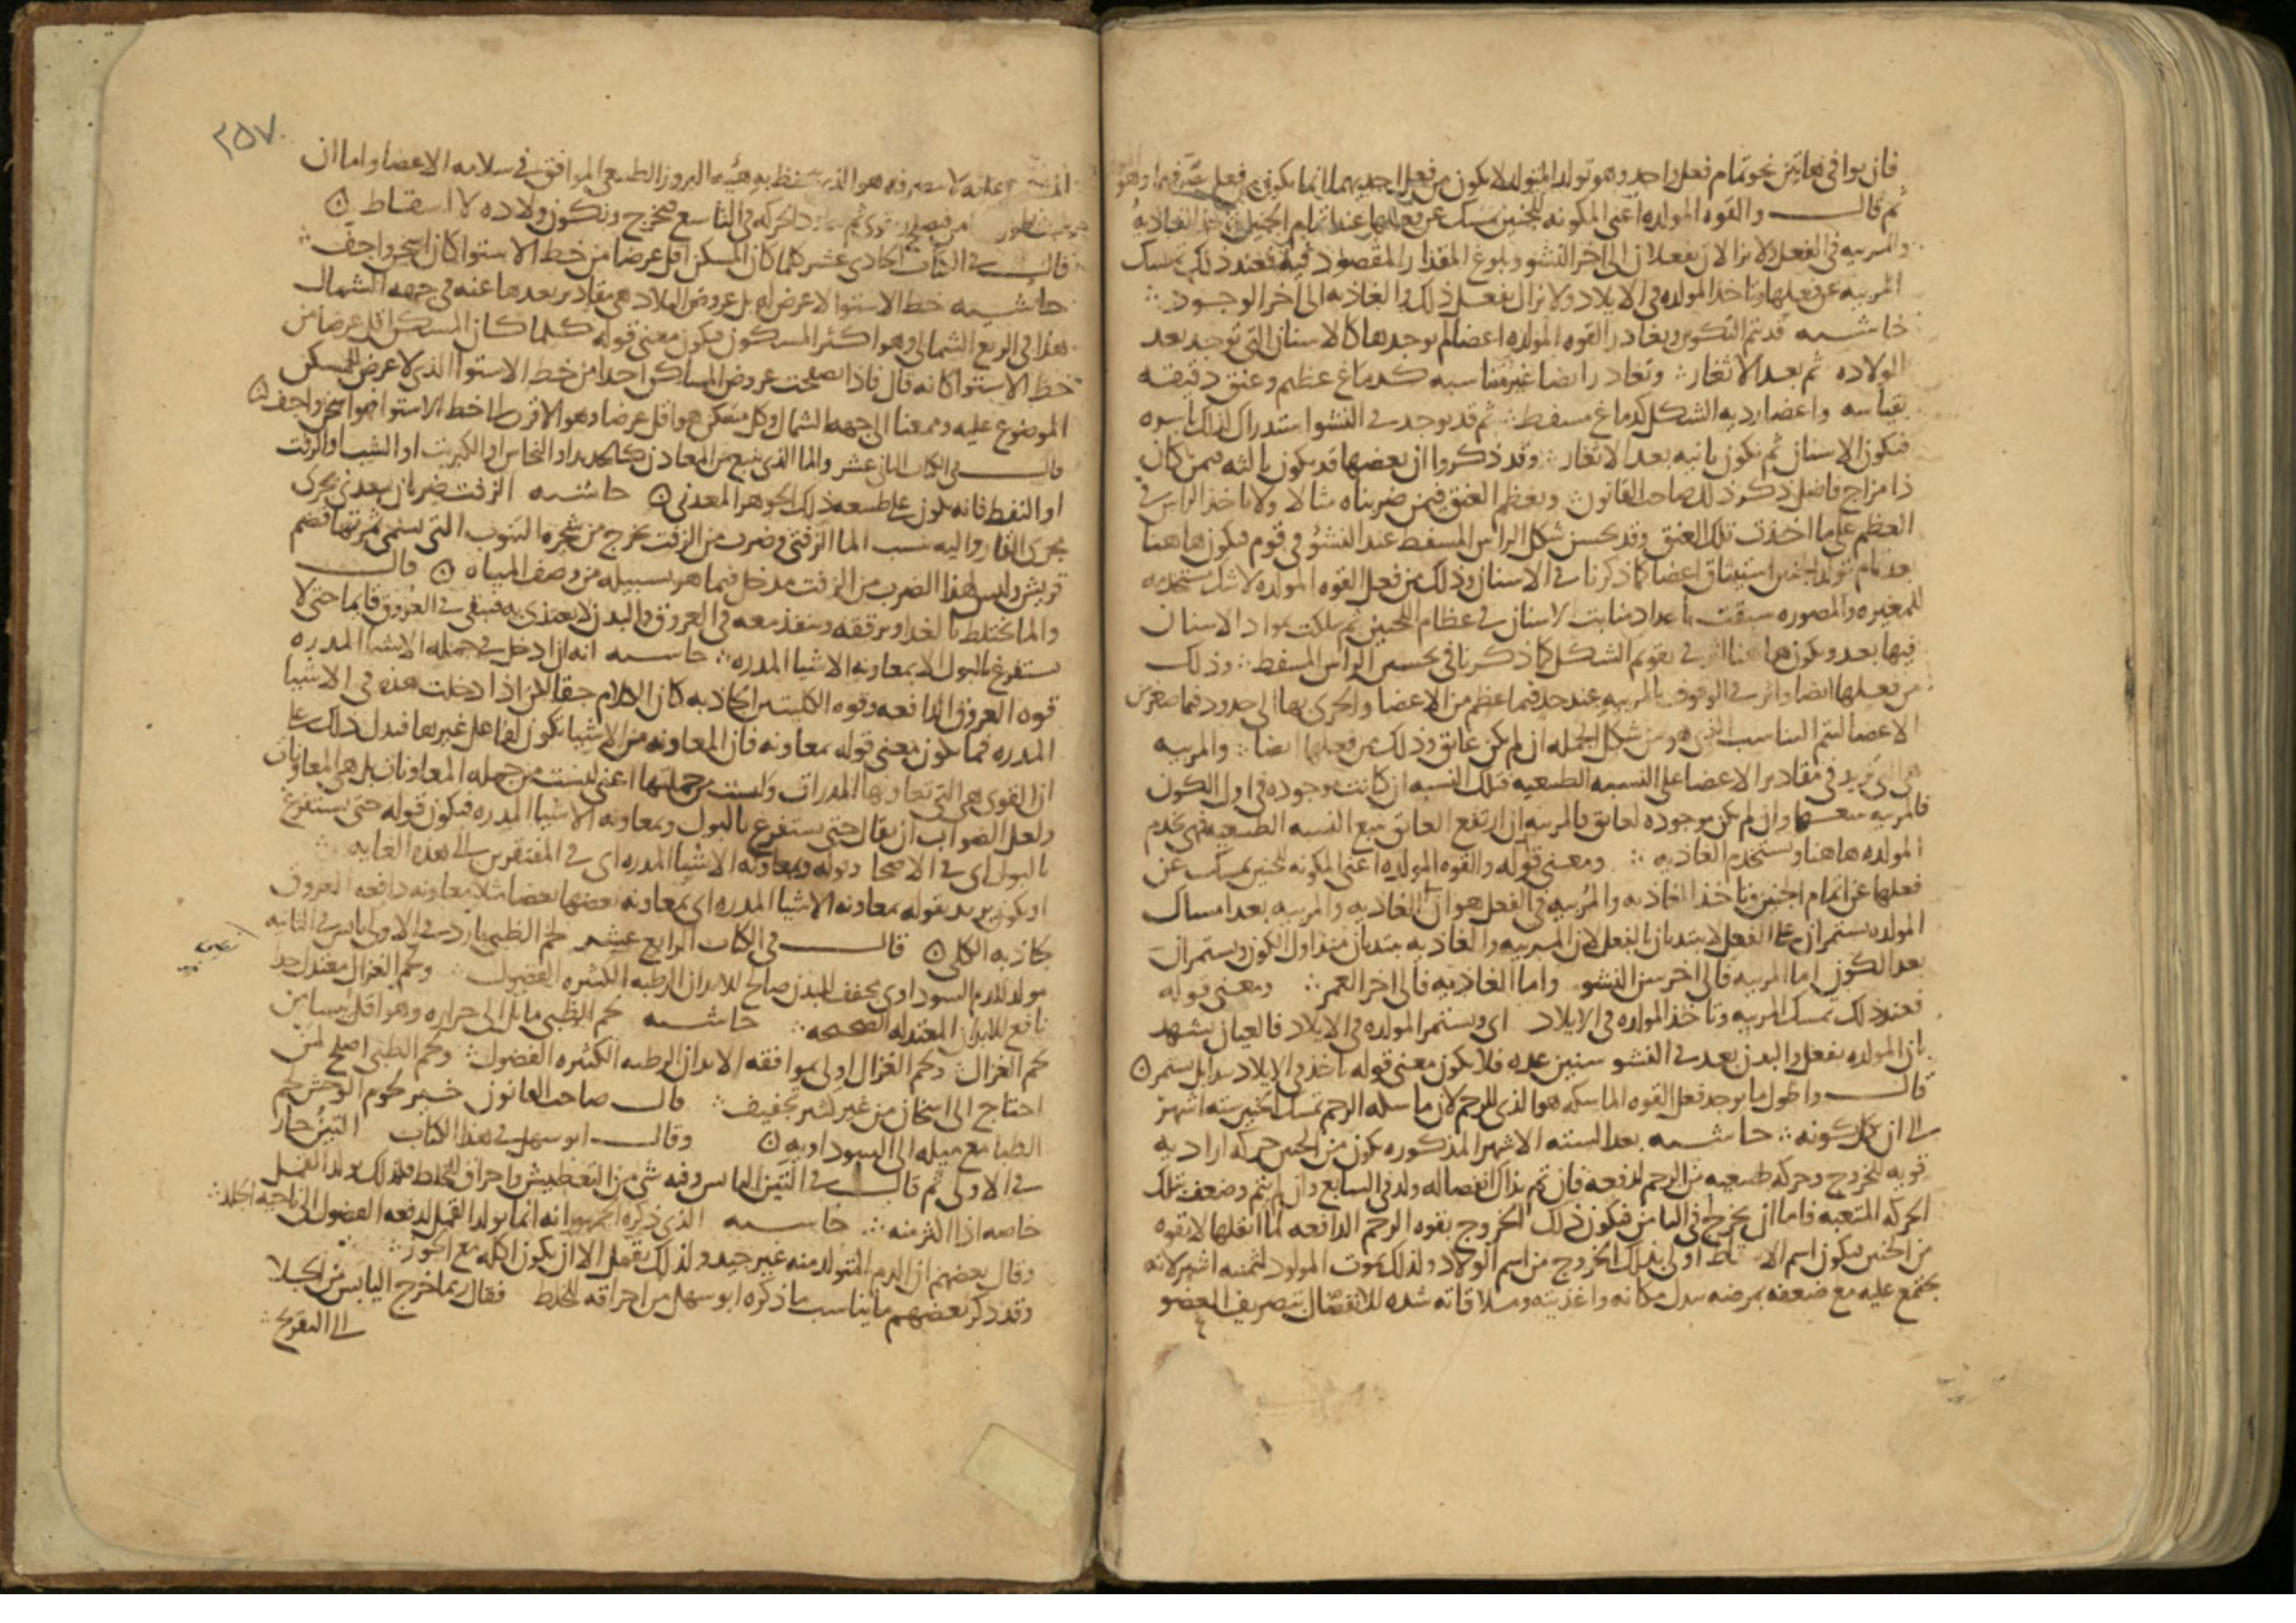 فان يوافى هاتين نحو تمام فعل واحد وهو تولد المتولد لا يكون من فعل احديهما انما يكون من فعل
ثم قال والقوه المولده اعنى المكونه للجنين تمسك عن فعلها عند اتمام الجنين الغاذيه
والمربيه فى الفعل ولا يزالان يفعلان الى اخر النشو وبلوغ المقدار المقصود فيه فعند ذلك تمسك
المربيه عن فعلها وتاخذ المولده فى الايلاد ولا تزال تفعل ذلك والغاذيه الى اخر الوجود
حاشيه قد تتم التكوين وتغادر القوه المولده اعضا لم توجدها كالاسنان التى توجد بعد
الولاده ثم بعد الاثغار وتغادر ايضا غير متناسبه كدماغ عظيم وعنق دقيقه
بقياسه واعضا رديه الشكل كدماغ مسفط ثم قد يوجد فى النشو استدراك لذلك باسره
فتكون الاسنان ثم تكون ثانيه بعد الاثغار وقد ذكروا ان بعضها قد يكون ثالثه فيمن كان
ذا مزاج فاضل ذكر ذلك صاحب القانون ويعظم العنق فيمن ضربناه مثالا ولا ياخذ الراس فى
العظم على ما اخذت تلك العنق وقد يحسن شكل الراس المسفط عند النشو فى قوم فيكون هاهنا
بعد تمام تولد الجنين استيناف اعضا كما ذكرنا فى الاسنان وذلك من فعل القوه المولده لا شك مستخدمه
للمغيره والمصوره سبقت باعداد منابت الاسنان فى عظام اللحيين ثم سلكت مواد الاسنان
فيها بعد ويكون هاهنا اثر فى تقويم الشكل كما ذكرنا فى تحسين الراس المسفط وذلك
من فعلها ايضا واثر فى الوقوف بالمربيه عند حد فيما عظم من الاعضا والجرى بها الى حدود فيما صغر من
الاعضا لتتم التناسب الذى هو من شكل الجمله ان لم يكن عايق وذلك من فعلها ايضا والمربيه
هى التى تزيد فى مقادير الاعضا على النسبه الطبيعيه فتلك النسبه ان كانت موجوده فى اول الكون
فالمربيه تتبعها وان لم تكن موجوده لعايق فالمربيه ان ارتفع العايق تتبع النسبه الطبيعيه فهى تخدم
المولده هاهنا وتستخدم الغاذيه ومعنى قوله والقوه المولده اعنى المكونه للجنين تمسك عن
فعلها عن اتمام الجنين وتاخذ الغاذيه والمربيه فى الفعل هو ان الغاذيه والمربيه بعد امساك
المولده يستمران على الفعل لا يبتديان بالفعل لان المربيه والغاذيه يبتديان منذ اول الكون ويستمران
بعد الكون اما المربيه فالى اخر سن النشو واما الغاذيه فالى اخر العمر ومعنى قوله
فعند ذلك تمسك المربيه وتاخذ المولده فى الايلاد اى ويستمر المولده فى الايلاد فالعيان يشهد
بان المولده تفعل والبدن بعد فى النشو سنين عده فلا يكون معنى قوله تاخذ فى الايلاد تبدا بل تستمر
قال واطول ما يوجد فعل القوه الماسكه هو الذى للرحم لان ماسكه الرحم تمسك الجنين سته اشهر
الى ان يكمل كونه حاشيه بعد السته الاشهر المذكوره يكون من الجنين حركه اراديه
قويه للخروج وحركه طبيعيه من الرحم لدفعه فان تم بذلك انفصاله ولد فى السابع وان لم يتم وضعف بتلك
الحركه المتعبه فاما ان يخرج فى الثامن فيكون ذلك الخروج بقوه الرحم الدافعه لما اثقلها لا بقوه
من الجنين فيكون اسم الاسقاط اولى بذلك الخروج من اسم الولاد ولذلك يموت المولود لثمنيه اشهر لانه
يجتمع عليه مع ضعفه بمرضه تبدل مكانه واغذيته وملاقاته شده للانفصال بتصريف العضو
٢٥٧
هو الذى تحفظ به هيئه البروز الطبيعى الموافق فى سلامه الاعضا واما ان
الحركه فى التاسع فيخرج وتكون ولاده لا اسقاط
قال فى الكتاب الحادى عشر كلما كان المسكن اقل عرضا من خط الاستوا كان اسخن واجف
حاشيه خط الاستوا لا عرض له بل عروض البلاد هى مقادير بعدها عنه فى جهه الشمال
هذا فى الربع الشمالى وهو اكثر المسكون فيكون معنى قوله كلما كان المسكن اقل عرضا من
خط الاستوا كانه قال فاذا تصفحت عروض المساكن اخذا من خط الاستوا الذى لا عرض للمسكن
الموضوع عليه وممعنا الى جهه الشمال وكل مسكن هو اقل عرضا وهو الاقرب الى خط الاستوا فهو اسخن واجف
قال فى الكتاب الثانى عشر والما الذى ينبع من المعادن كالحديد او النحاس او الكبريت او الشب او الزفت
او النفط فانه يكون على طبيعه ذلك الجوهر المعدنى حاشيه الزفت ضربان معدنى يجرى
مجرى القار واليه نسب الما الزفتى وضرب من الزفت يخرج من شجره التنوب التى تسمى ثمرتها قضم
قريش وليس لهذا الضرب من الزفت مدخل فيما هو بسبيله من وصف المياه قال
والما يختلط بالغذا ويرققه وينفذ معه فى العروق والبدن لا يغتذى به فيبقى فى العروق قايما حتى لا
يستفرغ بالبول الا بمعاونه الاشيا المدره حاشيه انه ان ادخل فى جمله الاشيا المدره
قوه العروق الدافعه وقوه الكليتين الجاذبه كان الكلام حقا لكن اذا ادخلت هذه فى الاشيا
المدره فما يكون معنى قوله بمعاونه فان المعاونه من الاشيا يكون لفاعل غيرها فيدل ذلك على
ان القوى هى التى تعاونها المدرات وليست من جملتها اعنى ليست من جمله المعاونات بل هى المعاونات
ولعل الصواب ان يقال حتى يستفرغ بالبول وبمعاونه الاشيا المدره فيكون قوله حتى يستفرغ
بالبول اى فى الاصحا وقوله وبمعاونه الاشيا المدره اى فى المفتقرين الى هذه الغايه
او يكون يريد بقوله بمعاونه الاشيا المدره اى بمعاونه بعضها بعضا مثلا معاونه دافعه العروق
جاذبه الكلى قال فى الكتاب الرابع عشر لحم الظبى بارد فى الاولى يابس فى الثانيه
مولد للدم السوداوى مجفف للبدن صالح للابدان الرطبه الكثيره الفضول ولحم الغزال معتدل جدا
نافع للابدان المعتدله الصحيحه حاشيه لحم الظبى مايل الى حراره وهو اقل يبسا من
لحم الغزال ولحم الغزال اولى بموافقه الابدان الرطبه الكثيره الفضول ولحم الظبى اصلح لمن
احتاج الى اسخان من غير كثير تجفيف قال صاحب القانون خير لحوم الوحش لحم
الظبا مع ميله الى السوداويه وقال ابو سهل فى هذا الكتاب التين حار
فى الاولى ثم قال فى التين اليابس وفيه شى من التعطيش واحراق للخلط فلذلك يولد القمل
خاصه اذا اكثر منه حاشيه الذى ذكره الجمهور انه انما يولد القمل لدفعه الفضول الى ناحيه الجلد
وقال بعضهم ان الدم المتولد منه غير جيد ولذلك يقمل الا ان يكون اكله مع الجوز
وقد ذكر بعضهم ما يناسب ما ذكره ابو سهل من احراقه للخلط فقال ربما خرج اليابس من الجلا
الى التقريح